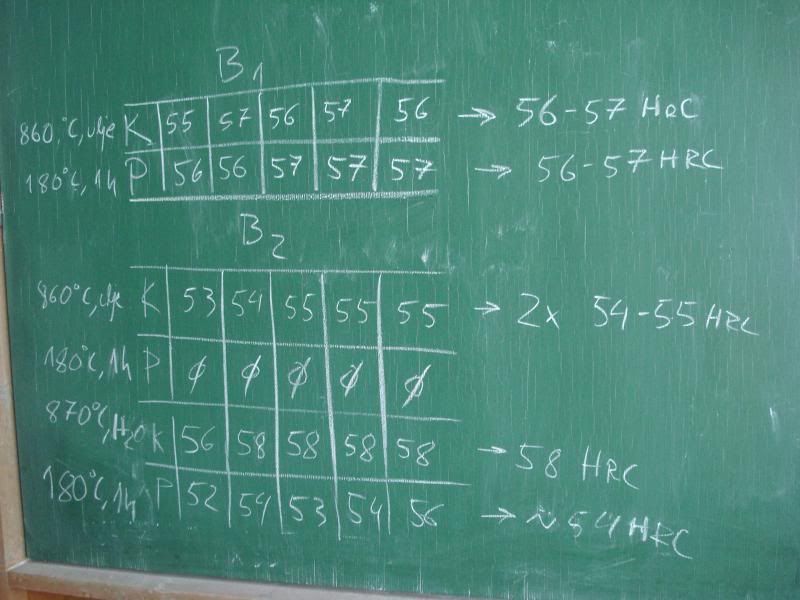 B1
860°C, ulje K 55 57 56 57 56 → 56-57 HRC
180°C, 1h P 56 56 57 57 57 → 56-57 HRC
B2
860°C, ulje K 53 54 55 55 55 → 2x 54-55 HRC
180°C, 1h P ∅ ∅ ∅ ∅ ∅
870°C, H2O K 56 58 58 58 58 → 58 HRC
180°C, 1h P 52 54 53 54 56 → ~54 HRC